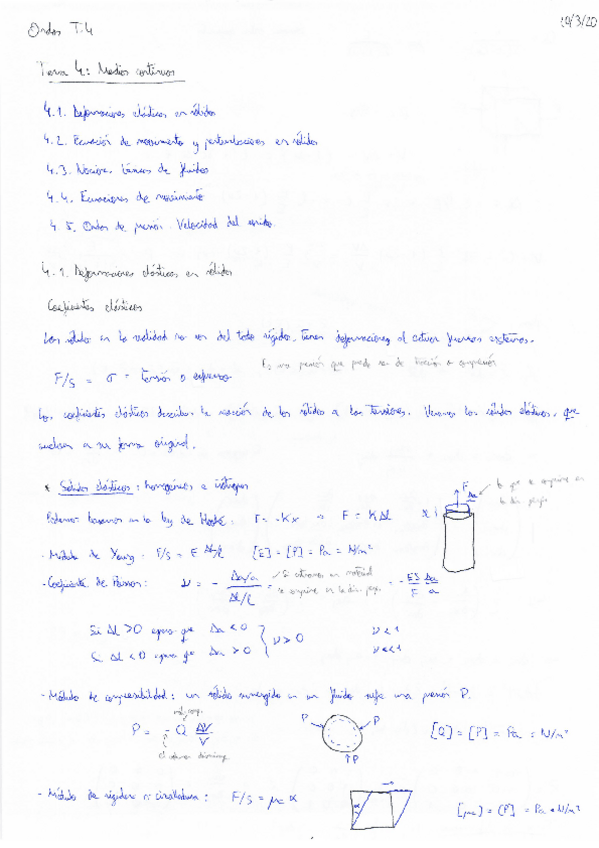 Ondas T.4
19/3/20
Tema 4: Medios continuos
4.1. Deformaciones elásticas en sólidos
4.2. Ecuación de movimiento y perturbaciones en sólidos
4.3. Nociones básicas de fluidos
4.4. Ecuaciones de movimiento
4.5. Ondas de presión. Velocidad del sonido.
4.1. Deformaciones elásticas en sólidos
Coeficientes elásticos
Los sólidos en la realidad no son del todo rígidos, tienen deformaciones al actuar fuerzas externas.
Es una presión que puede ser de tracción o compresión
F/S = σ = tensión o esfuerzo
Los coeficientes elásticos describen la reacción de los sólidos a las tensiones. Veremos los sólidos elásticos, que
vuelven a su forma original.
* Sólidos elásticos: homogéneos e isótropos
F Δa lo que se comprime en la dir.
Podemos basarnos en la ley de Hooke: F = -Kx ⇒ F = KΔl
- Módulo de Young: F/S = E Δl/l [E] = [P] = Pa = N/m²
- Coeficiente de Poisson: ν = - (Δa/a)/(Δl/l) = - ES/F Δa/a
Si estiramos un material se comprime en la dir.
Si Δl > 0 Δa < 0
Si Δl < 0 Δa > 0
ν > 0
ν < 1
ν << 1
- Módulo de compresibilidad: un sólido sumergido en un fluido sufre una presión P.
P = - Q ΔV/V
P P P
[Q] = [P] = Pa = N/m²
el volumen disminuye
- Módulo de rigidez o cizalladura: F/S = μc α
α
[μc] = [P] = Pa = N/m²